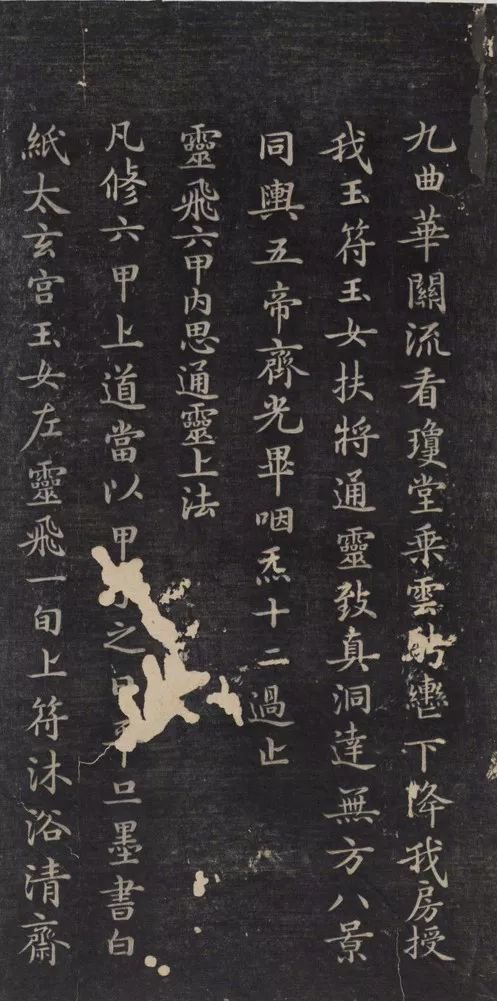 九曲華關流看瓊堂乗雲轡下降我房授
我玉符玉女扶將通靈致真洞達無方八景
同輿五帝齊光畢咽炁十二過止
靈飛六甲內思通靈上法
凡修六甲上道當以甲之日平旦墨書白
紙太玄宮玉女左靈飛一旬上符沐浴清齋